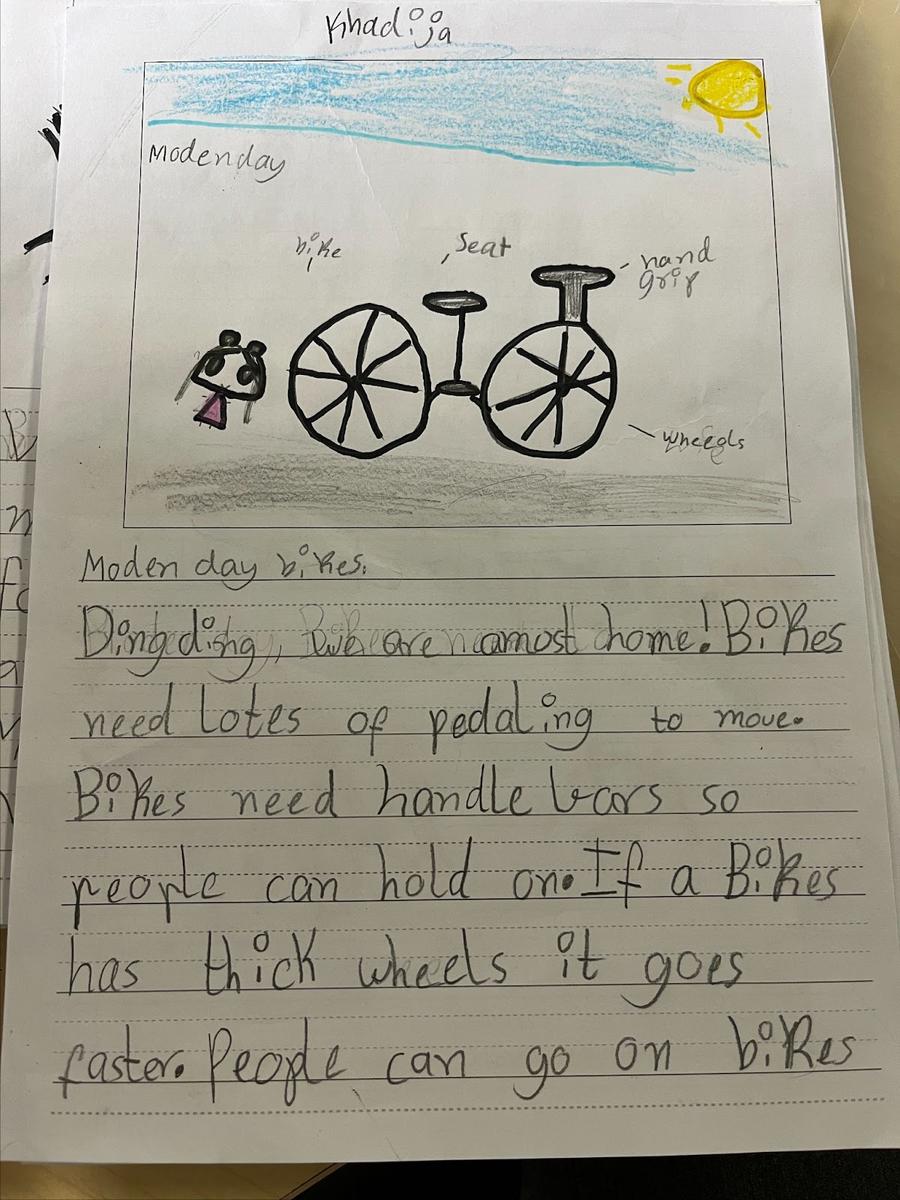 Khadija
Modenday
bike
seat
hand
grip
wheels
Moden day bikes.
Dingding, we are amost home! Bikes
need lotes of pedaling to move.
Bikes need handle bars so
people can hold on. If a Bikes
has thick wheels it goes
faster. People can go on bikes